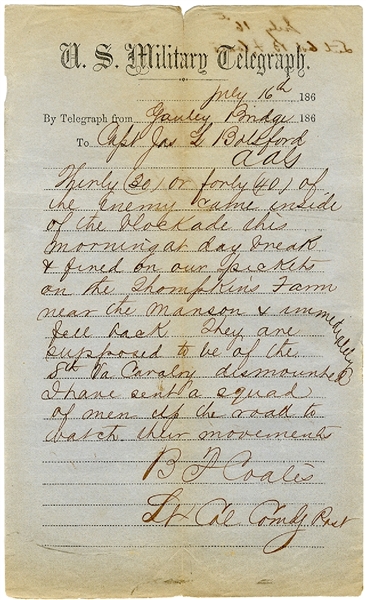 July 16th
U. S. Military Telegraph.
July 16th 186
By Telegraph from Gauley Bridge 186
To Capt Jas L Botsford
A A G
Thirty (30) or forty (40) of
the enemy came inside
of the blockade this
morning at day break
& fired on our pickets
on the Thompkins Farm
near the Manson & immediately
fell back They are
supposed to be of the
8th Va Cavalry dismounted
I have sent a squad
of men up the road to
watch their movements
B F Coates
Lt Col Comdg Post